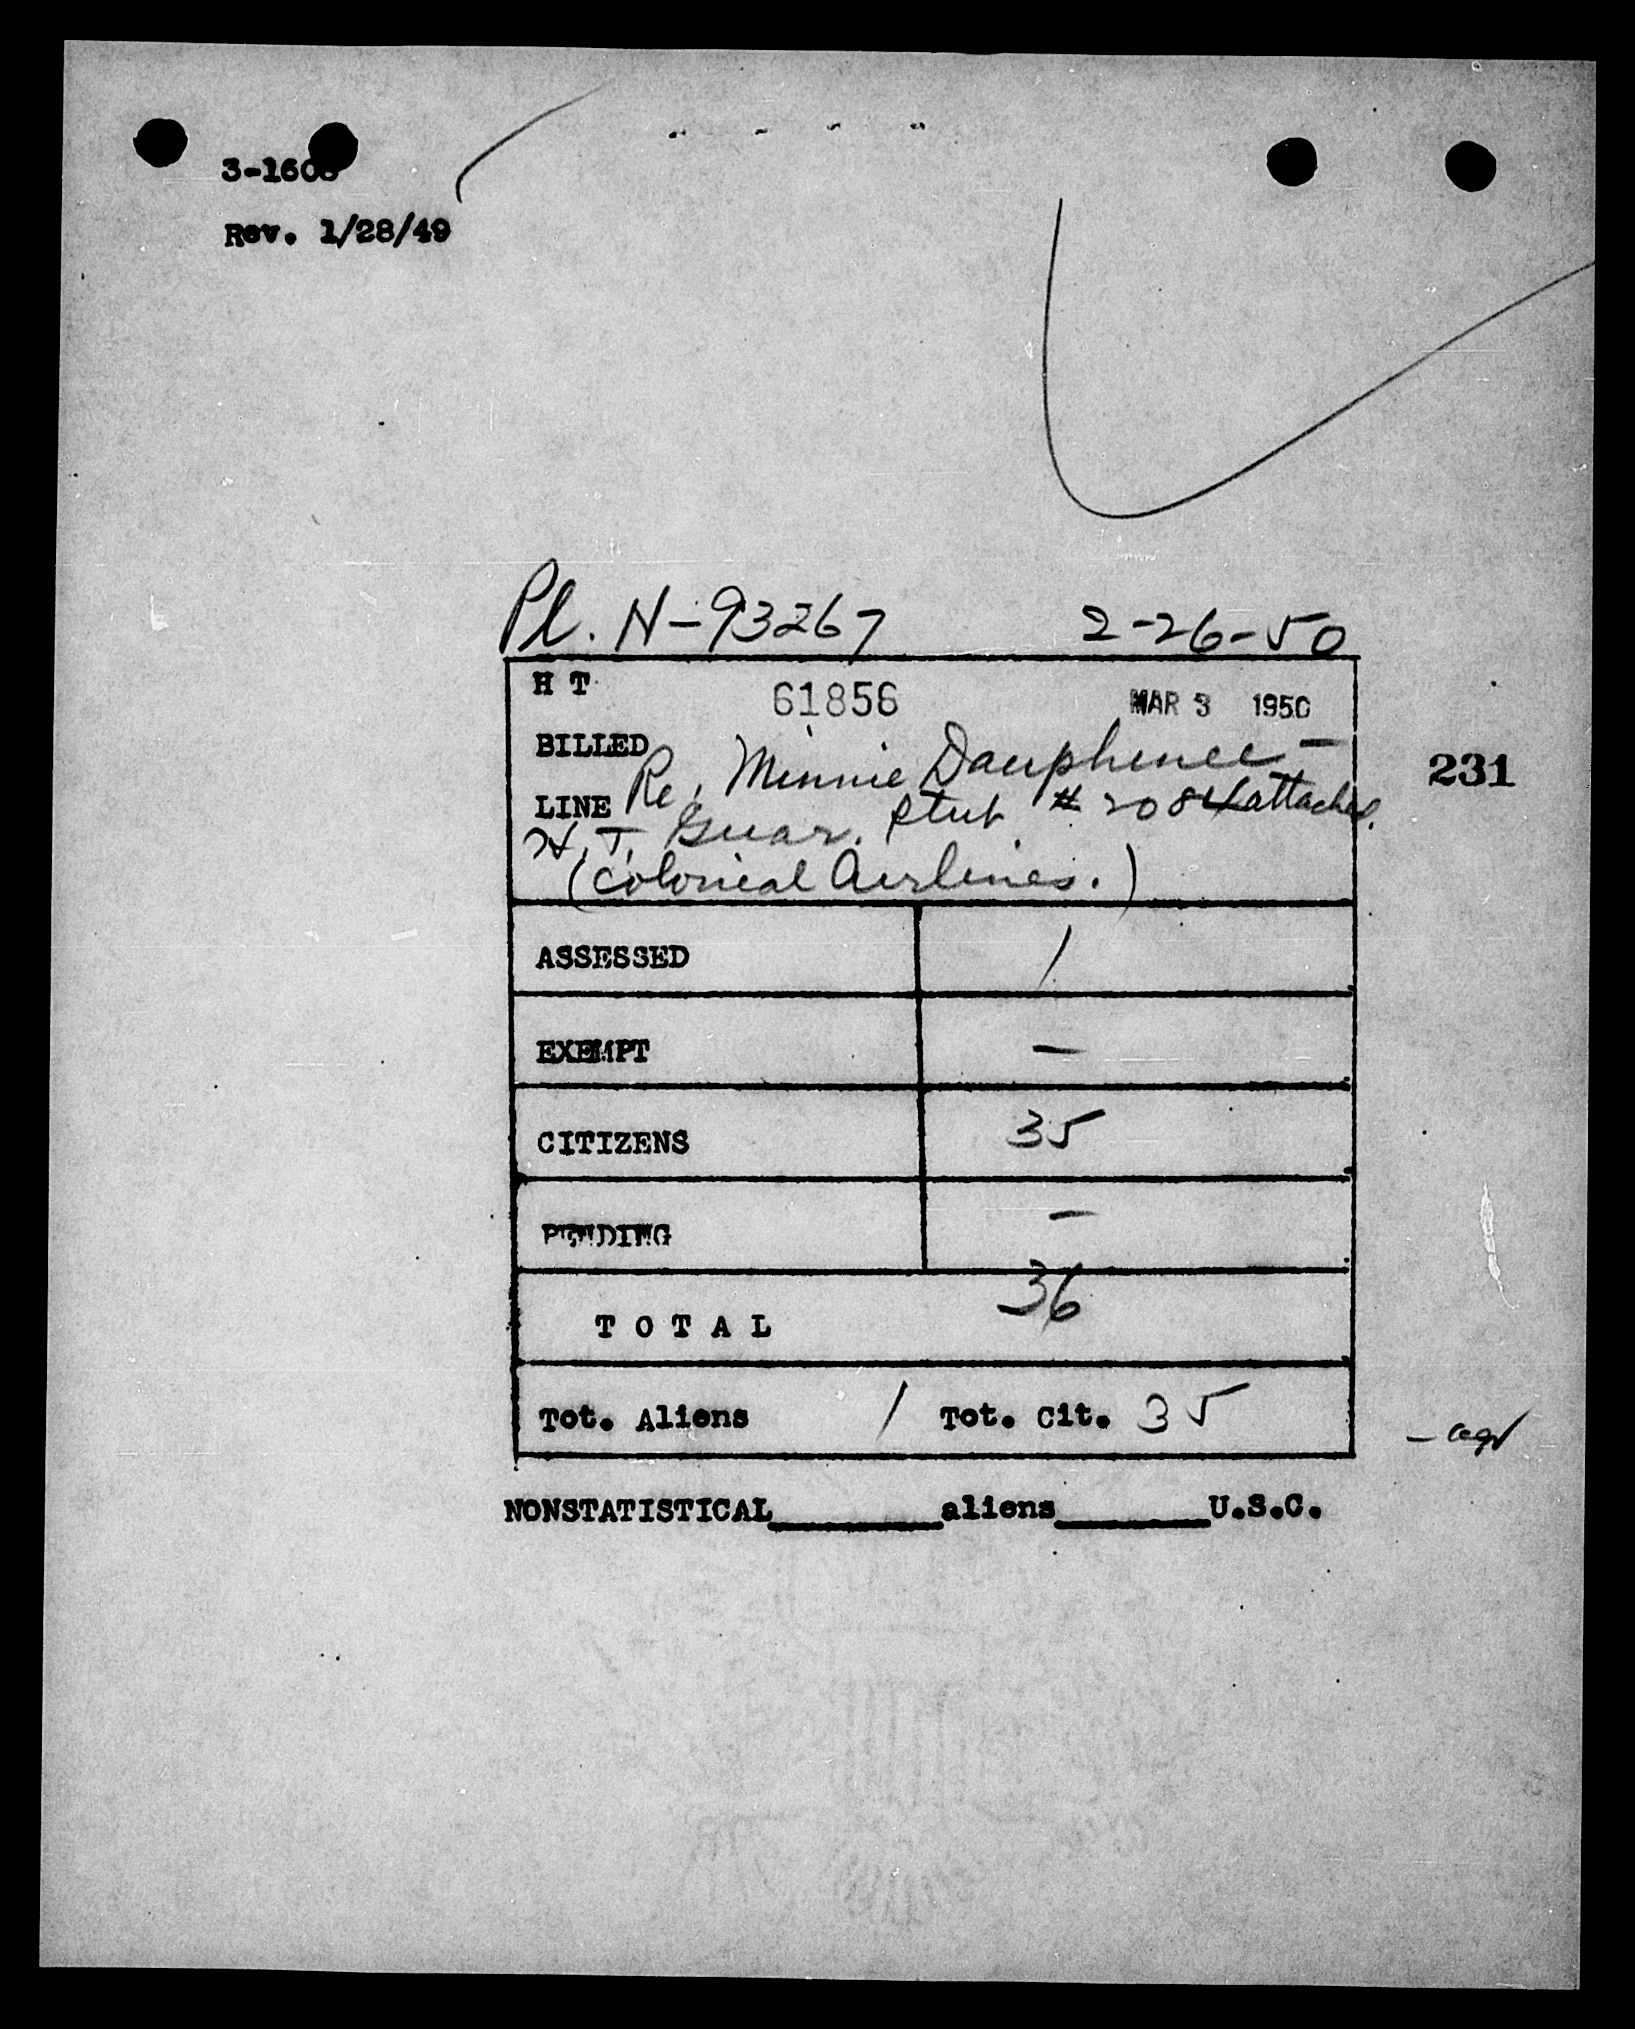 Rev. 1/28/49
Pl. N-93267 2-26-50
H T 61856 MAR 3 1950
BILLED
Re. Minnie Dauphinee -
LINE
Stub # 2084 attached.
H.T. Guar.
(Colonial Airlines.)
231
ASSESSED 1
EXEMPT -
CITIZENS 35
PENDING -
TOTAL 36
Tot. Aliens 1 Tot. Cit. 35
NONSTATISTICAL________aliens________U.S.C.